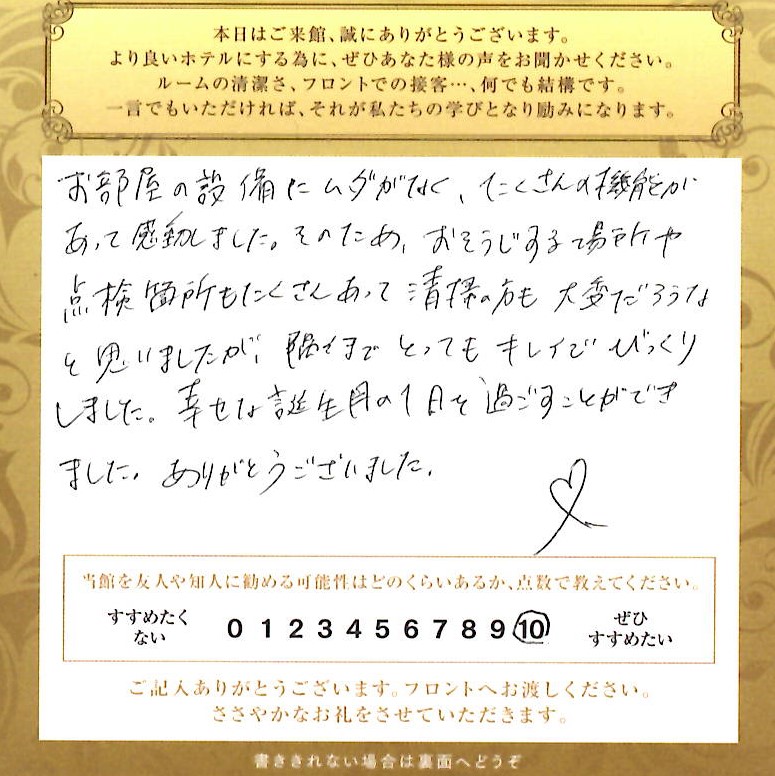 本日はご来館、誠にありがとうございます。
より良いホテルにする為に、ぜひあなた様の声をお聞かせください。
ルームの清潔さ、フロントでの接客…、何でも結構です。
一言でもいただければ、それが私たちの学びとなり励みになります。
お部屋の設備にムダがなく、たくさんの機能が
あって感動しました。そのため、おそうじする場所や
点検箇所もたくさんあって清掃の方も大変だろうな
と思いましたが、隅々までとってもキレイでびっくり
しました。幸せな誕生月の1日を過ごすことができ
ました。ありがとうございました。
当館を友人や知人に勧める可能性はどのくらいあるか、点数で教えてください。
すすめたく
ない
0 1 2 3 4 5 6 7 8 9 10
ぜひ
すすめたい
ご記入ありがとうございます。フロントへお渡しください。
ささやかなお礼をさせていただきます。
書ききれない場合は裏面へどうぞ